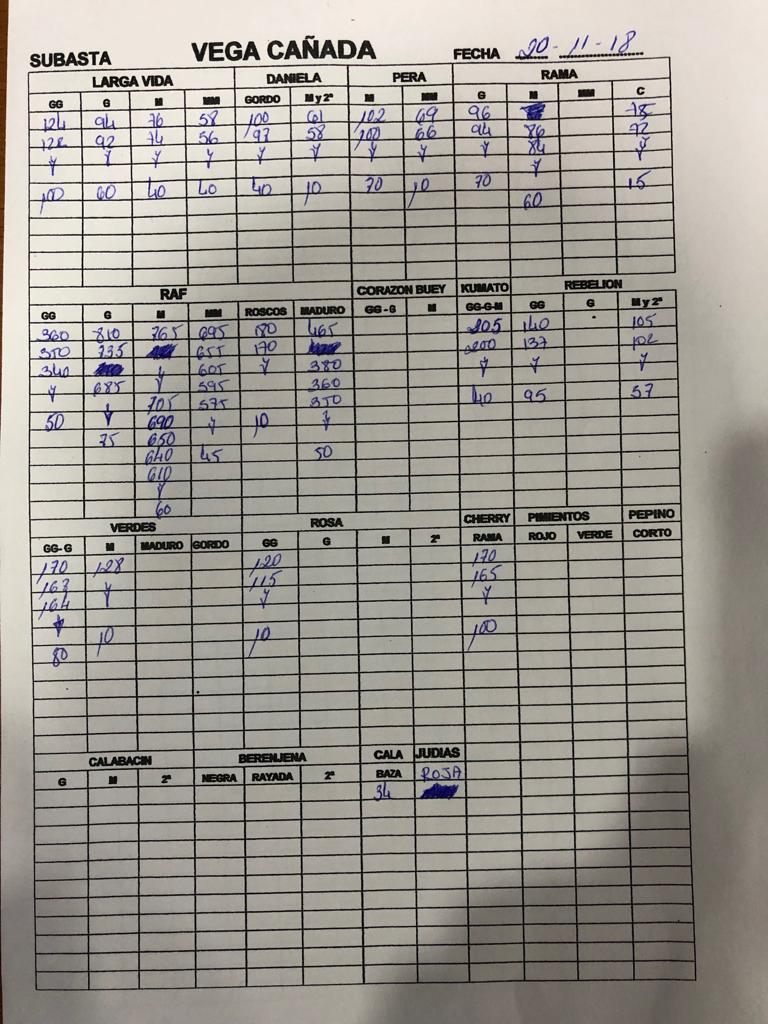 SUBASTA VEGA CAÑADA FECHA 20-11-18
LARGA VIDA DANIELA PERA RAMA
GG G M MM GORDO M y 2ª M MM G M MM C
124 94 76 58 100 61 102 69 96 78
122 92 74 56 93 58 100 66 94 86 72
y y y y y y y y y 84 y
y
100 60 40 40 40 10 70 10 70 15
60
RAF CORAZON BUEY KUMATO REBELION
GG G M MM ROSCOS MADURO GG-G M GG-G-M GG G M y 2ª
360 810 765 695 180 465 205 140 105
350 735 655 170 200 137 102
340 y 605 y 380 y y y
y 685 y 595 360 40 95 57
y 705 575 350
50 690 y 10 y
75 650
640 45 50
610
y
60
VERDES ROSA CHERRY PIMIENTOS PEPINO
GG-G M MADURO GORDO GG G M 2ª RAMA ROJO VERDE CORTO
170 128 120 170
167 y 115 165
164 y y
y
80 10 10 100
CALABACIN BERENJENA CALA JUDIAS
G M 2ª NEGRA RAYADA 2ª BAZA ROJA
34